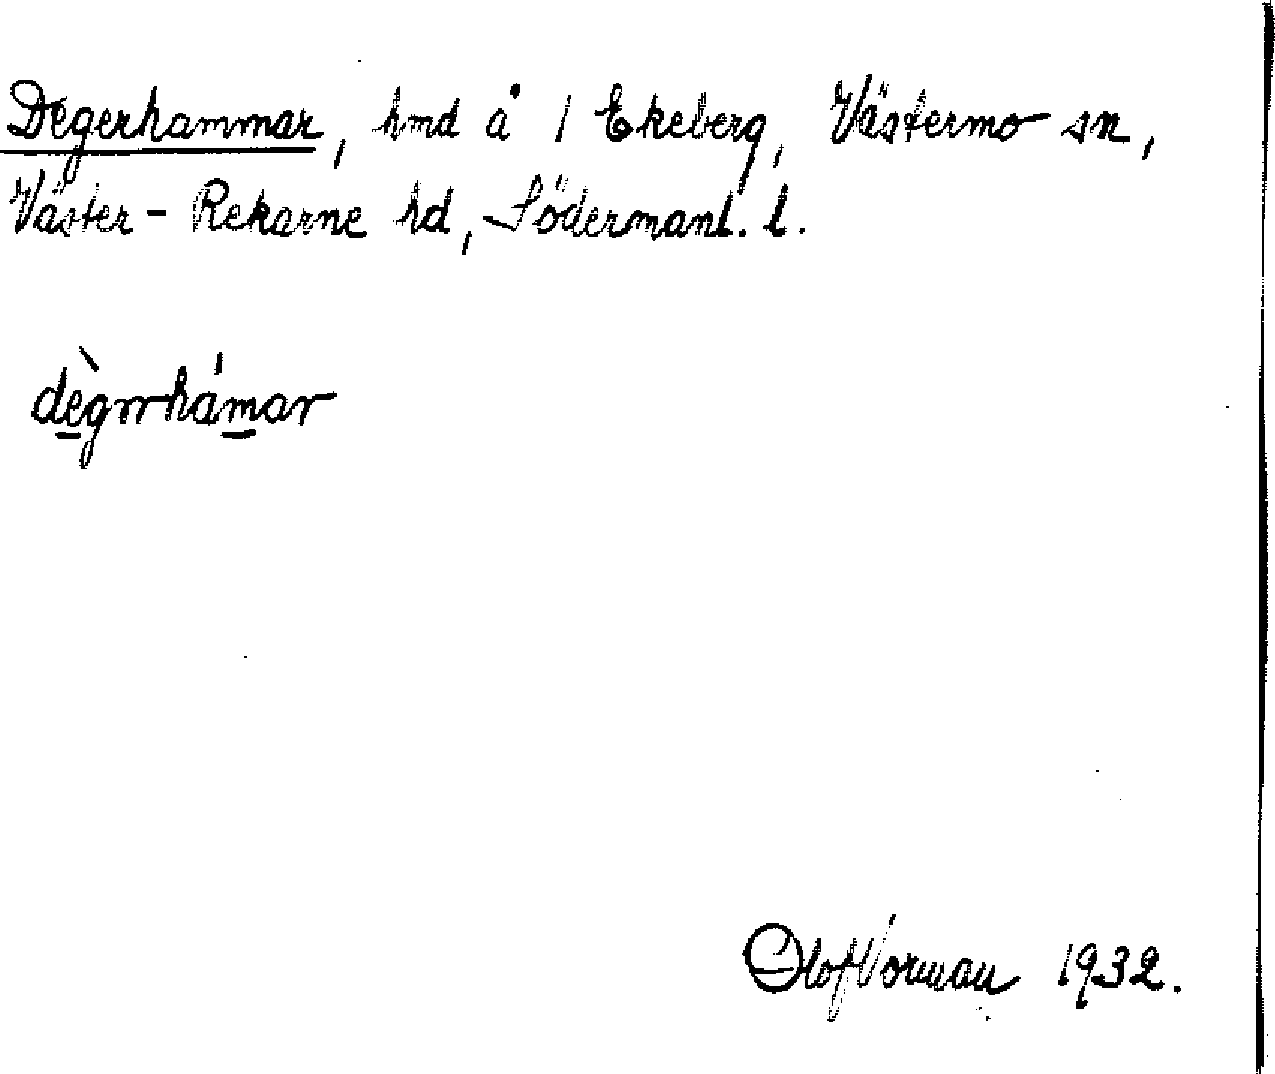 Degerhammar, hmd å 1 Ekeberg, Västermo sn,
Väster-Rekarne hd, Södermanl. l.
dègrrhámar
Olof Vorman 1932.